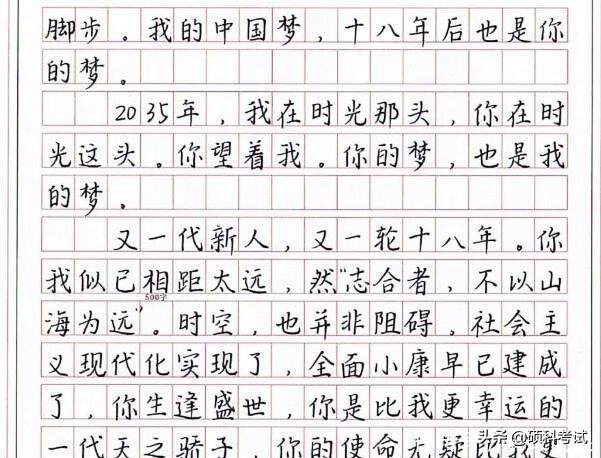 脚步。我的中国梦，十八年后也是你
的梦。
2035年，我在时光那头，你在时
光这头。你望着我。你的梦，也是我
的梦。
又一代新人，又一轮十八年。你
我似已相距太远，然“志合者，不以山
500字
海为远”。时空，也并非阻碍，社会主
义现代化实现了，全面小康早已建成
了，你生逢盛世，你是比我更幸运的
一代天之骄子，你的使命无疑比我更
头条@硕科考试